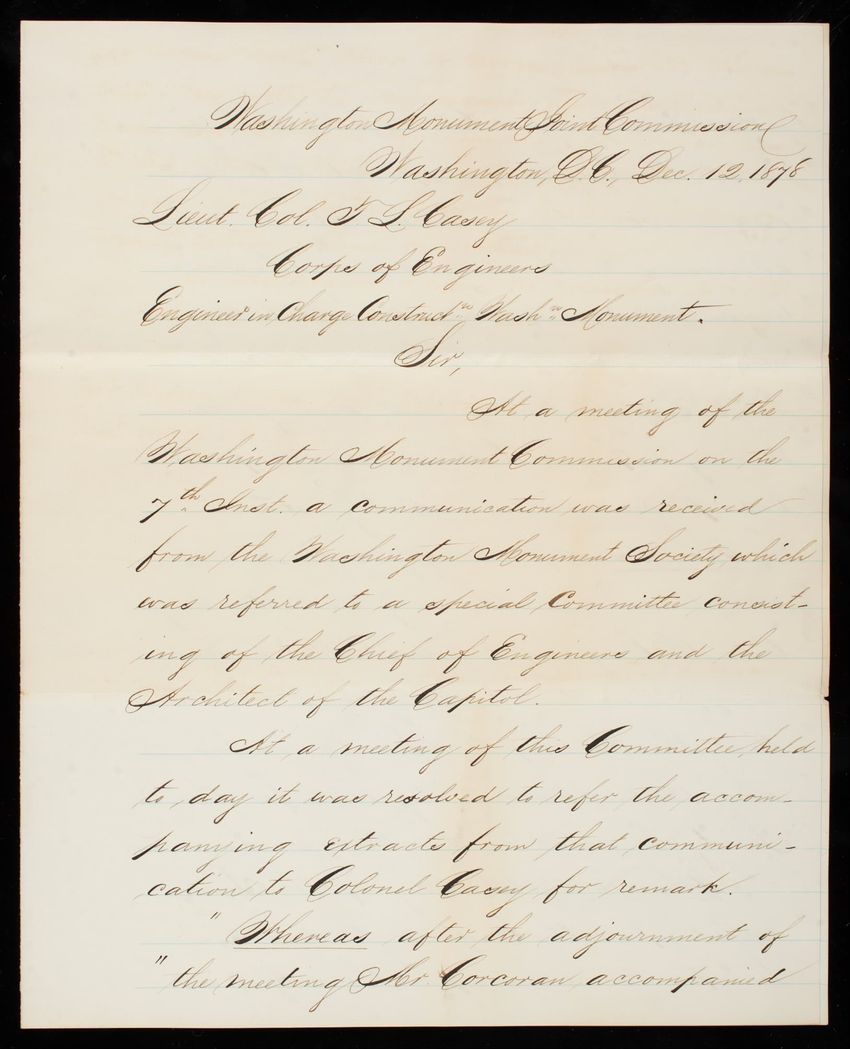 Washington Monument Joint Commission
Washington, D.C., Dec. 12, 1878
Lieut. Col. T. L. Casey
Corps of Engineers
Engineer in Charge Construct:n Wash:n Monument.
Sir,
At a meeting of the
Washington Monument Commission on the
7th Inst. a communication was received
from the Washington Monument Society which
was referred to a special Committee consist-
ing of the Chief of Engineers and the
Architect of the Capitol.
At a meeting of this Committee, held
to day it was resolved to refer the accom-
panying extracts from that communi-
cation to Colonel Casey for remark.
" Whereas after the adjournment of
" the meeting Mr. Corcoran accompanied